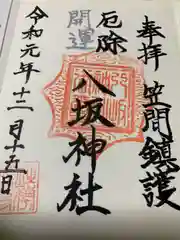 奉拝
笠間鎮護
厄除
開運
八坂神社
令和元年十二月十五日